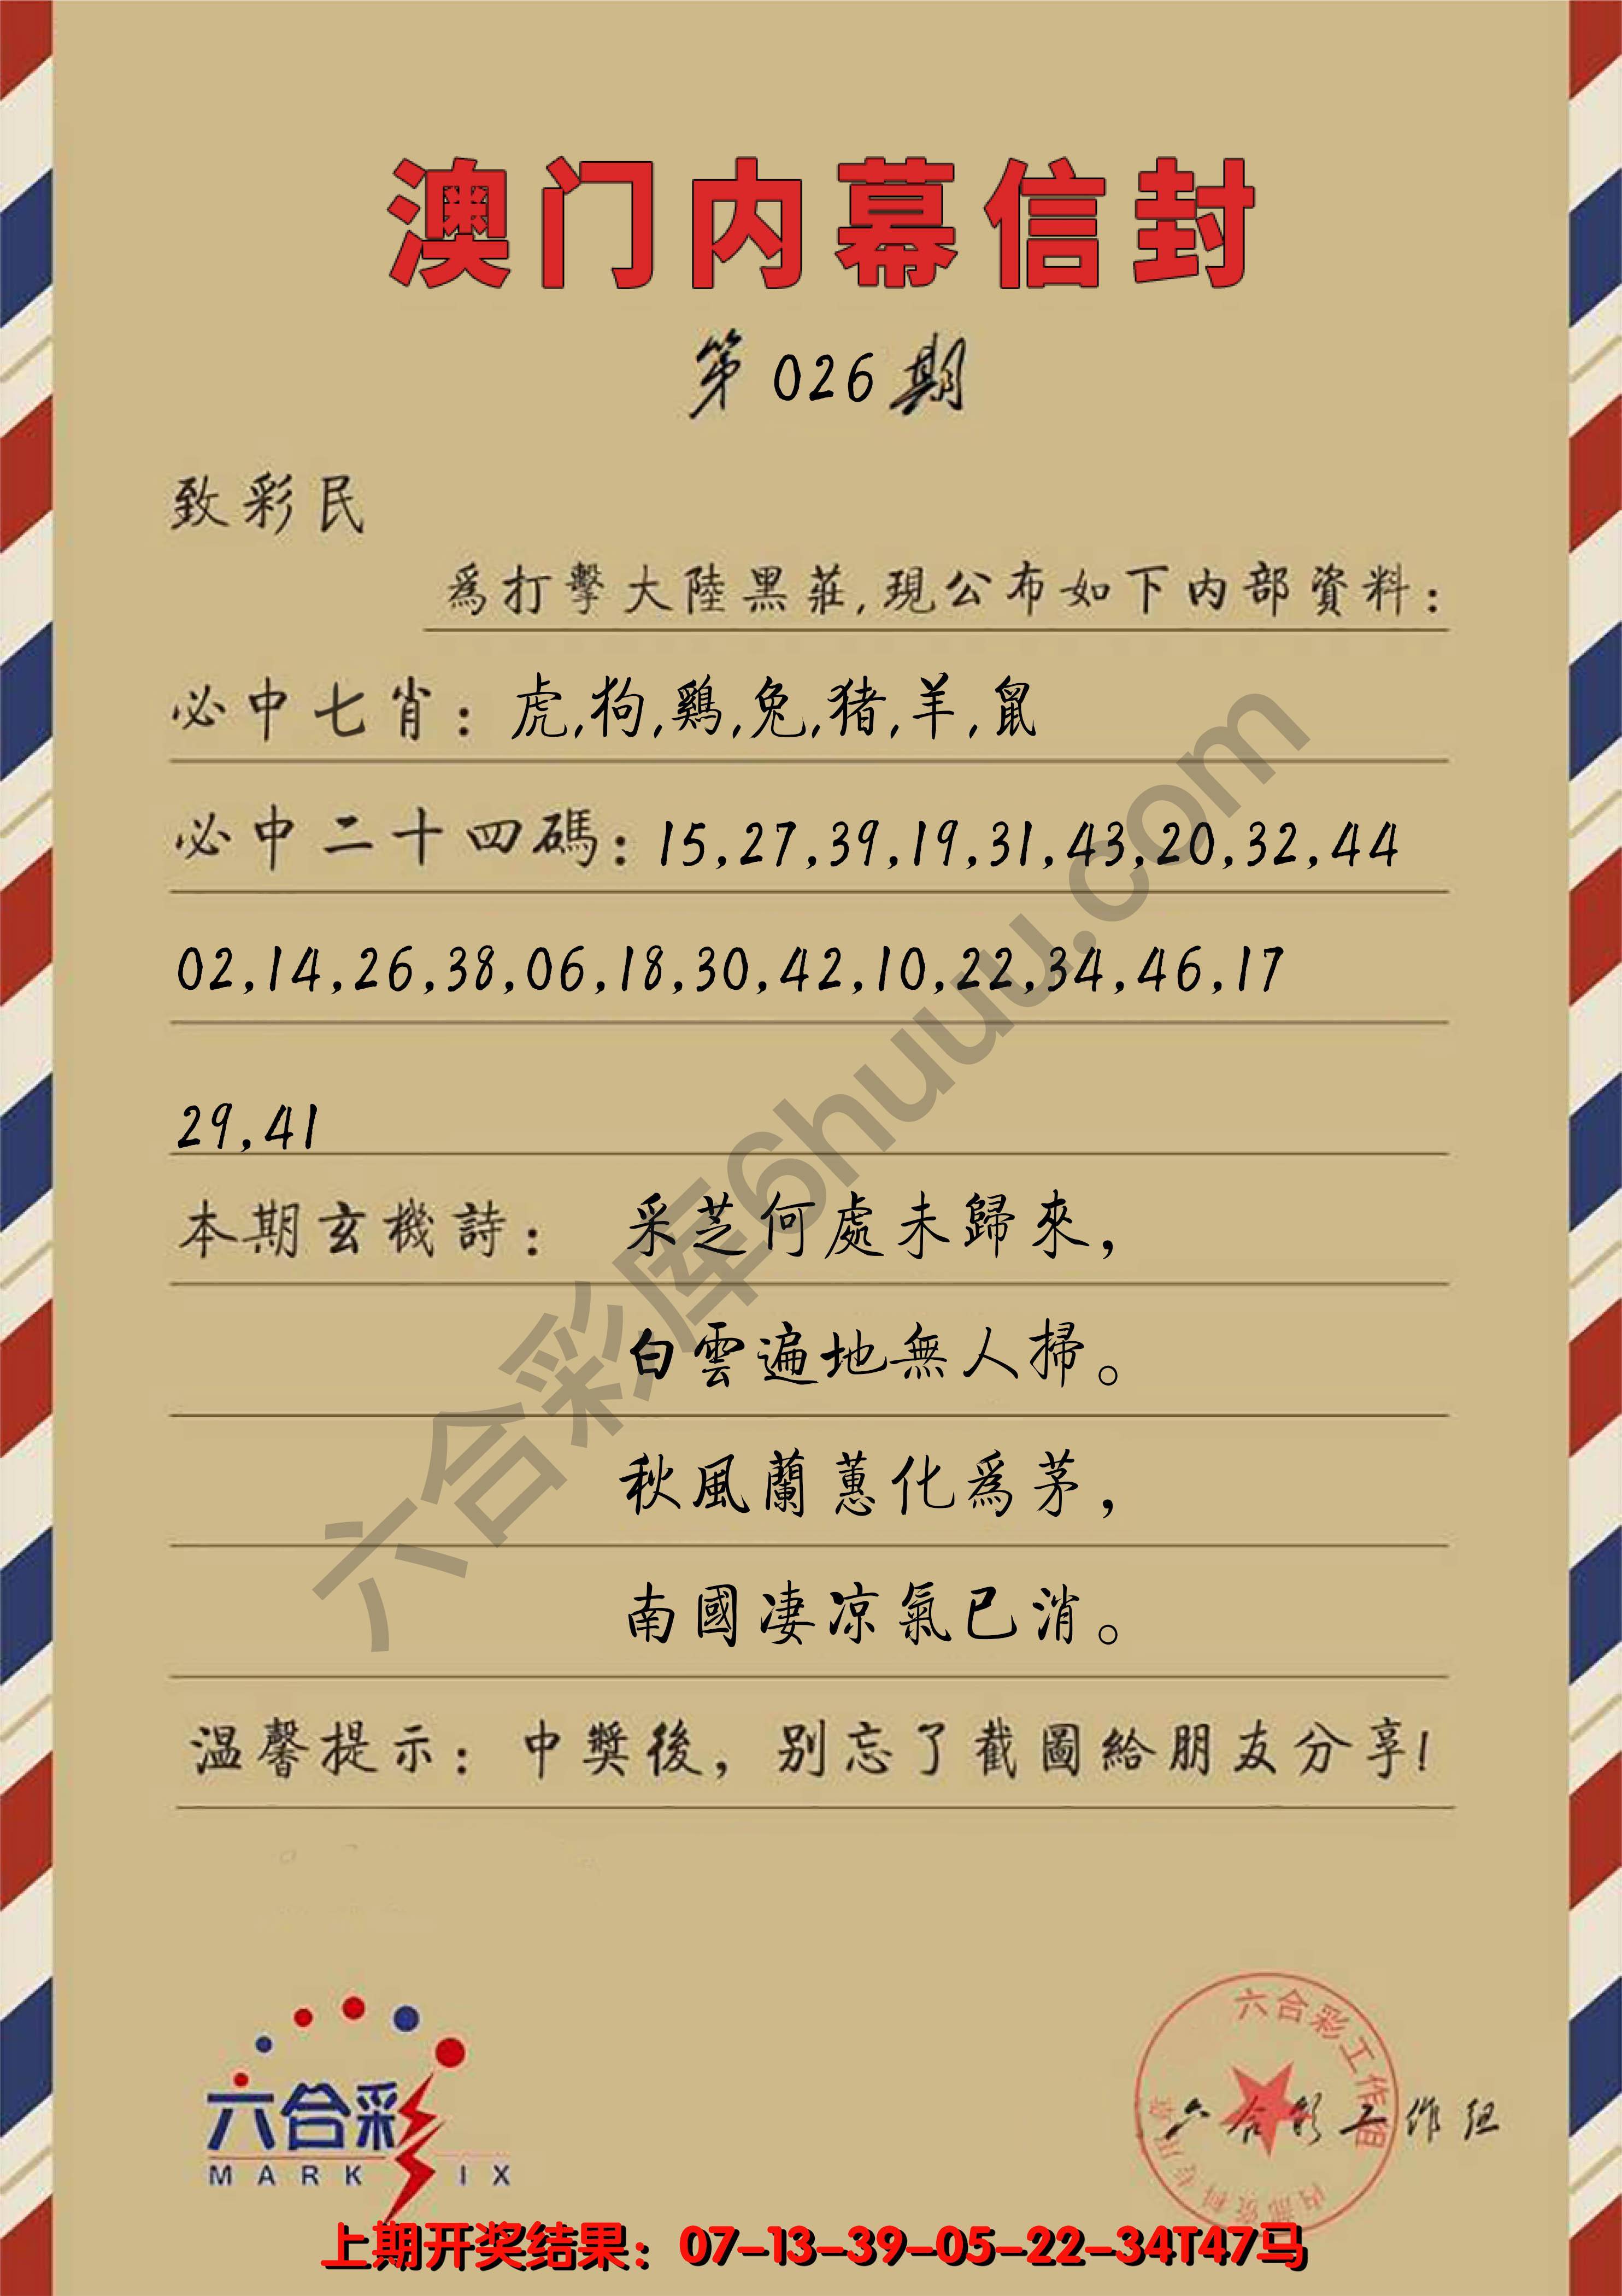 澳门内幕信封
第026期
致彩民
爲打擊大陸黑莊,現公布如下内部資料:
必中七肖: 虎,狗,鷄,兔,猪,羊,鼠
必中二十四碼: 15,27,39,19,31,43,20,32,44
02,14,26,38,06,18,30,42,10,22,34,46,17
29,41
本期玄機詩: 采芝何處未歸來,
白雲遍地無人掃。
秋風蘭蕙化爲茅,
南國凄凉氣已消。
温馨提示: 中獎後, 别忘了截圖給朋友分享!
六合彩库6huuu.com
六合彩
MARK IX
六合彩工作组
内部资料专用章
六合彩工作组
上期开奖结果: 07-13-39-05-22-34T47马